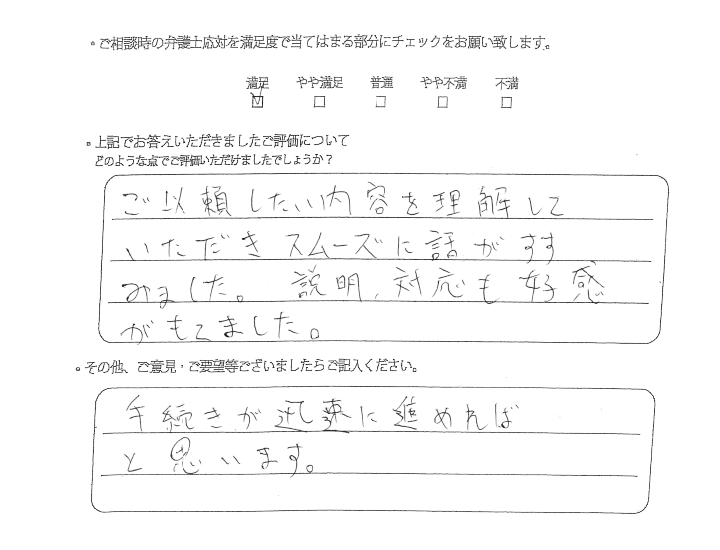 ・ご相談時の弁護士応対を満足度で当てはまる部分にチェックをお願い致します。
満足 やや満足 普通 やや不満 不満
☑ □ □ □ □
・上記でお答えいただきましたご評価について
どのような点でご評価いただけましたでしょうか？
ご以頼したい内容を理解して
いただきスムーズに話がすす
みました。説明、対応も好感
がもてました。
・その他、ご意見・ご要望等ございましたらご記入ください。
手続きが迅速に進めれば
と思います。